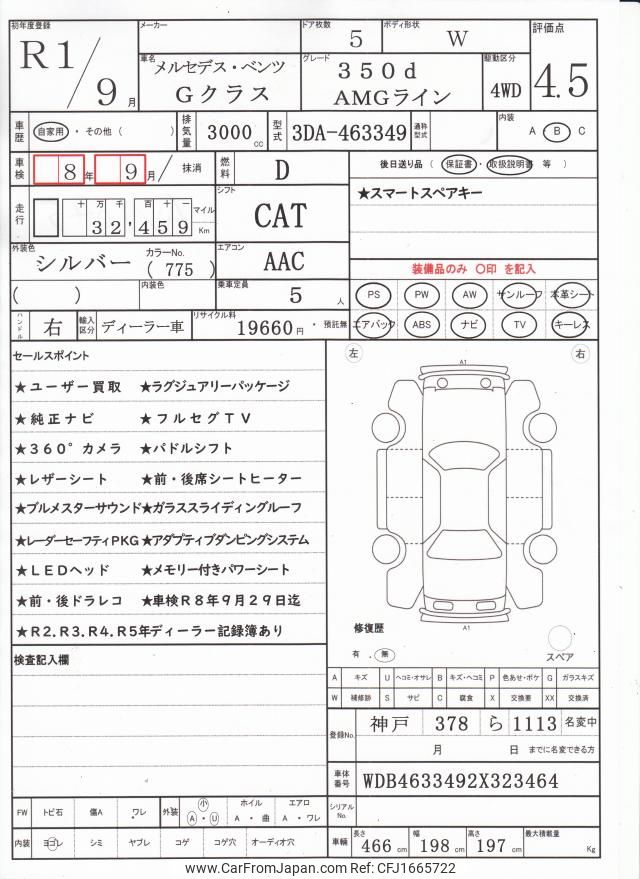 初年度登録 メーカー ドア枚数 ボディ形状 評価点
R1/9月 5 W 4.5
車名 グレード 駆動区分
メルセデス・ベンツ 350d 4WD
Gクラス AMGライン
車歴 自家用・その他( ) 排気量 3000cc 型式 3DA-463349 通称型式 内装 A B C
車検 8年 9月/ 抹消 燃料 D 後日送り品(保証書・取扱説明書 等)
走行 十万千百十一 32,459 マイル Km シフト CAT ★スマートスペアキー
外装色 シルバー カラーNo. (775) エアコン AAC 装備品のみ 〇印 を記入
( ) 内装色 乗車定員 5人 PS PW AW サンルーフ 本革シート
ハンドル 右 輸入区分 ディーラー車 リサイクル料 19660円・預託無 エアバック ABS ナビ TV キーレス
セールスポイント 左 右
A1
★ユーザー買取 ★ラグジュアリーパッケージ
★純正ナビ ★フルセグTV
★360°カメラ ★パドルシフト
★レザーシート ★前・後席シートヒーター
★ブルメスターサウンド★ガラススライディングルーフ
★レーダーセーフティPKG★アダプティブダンピングシステム
★LEDヘッド ★メモリー付きパワーシート
★前・後ドラレコ ★車検R8年9月29日迄
★R2.R3.R4.R5年ディーラー記録簿あり
A1
修復歴
有・無 スペア
検査記入欄
A キズ U ヘコミ・オサレ B キズ・ヘコミ P 色あせ・ボケ G ガラスキズ
W 補修跡 S サビ C 腐食 X 交換要 XX 交換済
登録No. 神戸 378 ら 1113 名変中
月 日 までに名変できる方
車体番号 WDB4633492X323464
シリアルNo.
FW トビ石 傷A ワレ 外装 小 A・U ホイル A・曲 エアロ A・ワレ
内装 ヨゴレ シミ ヤブレ コゲ コゲ穴 オーディオ穴
車輛 長さ 466cm 幅 198cm 高さ 197cm 最大積載量 Kg
www.CarFromJapan.com Ref: CFJ1665722